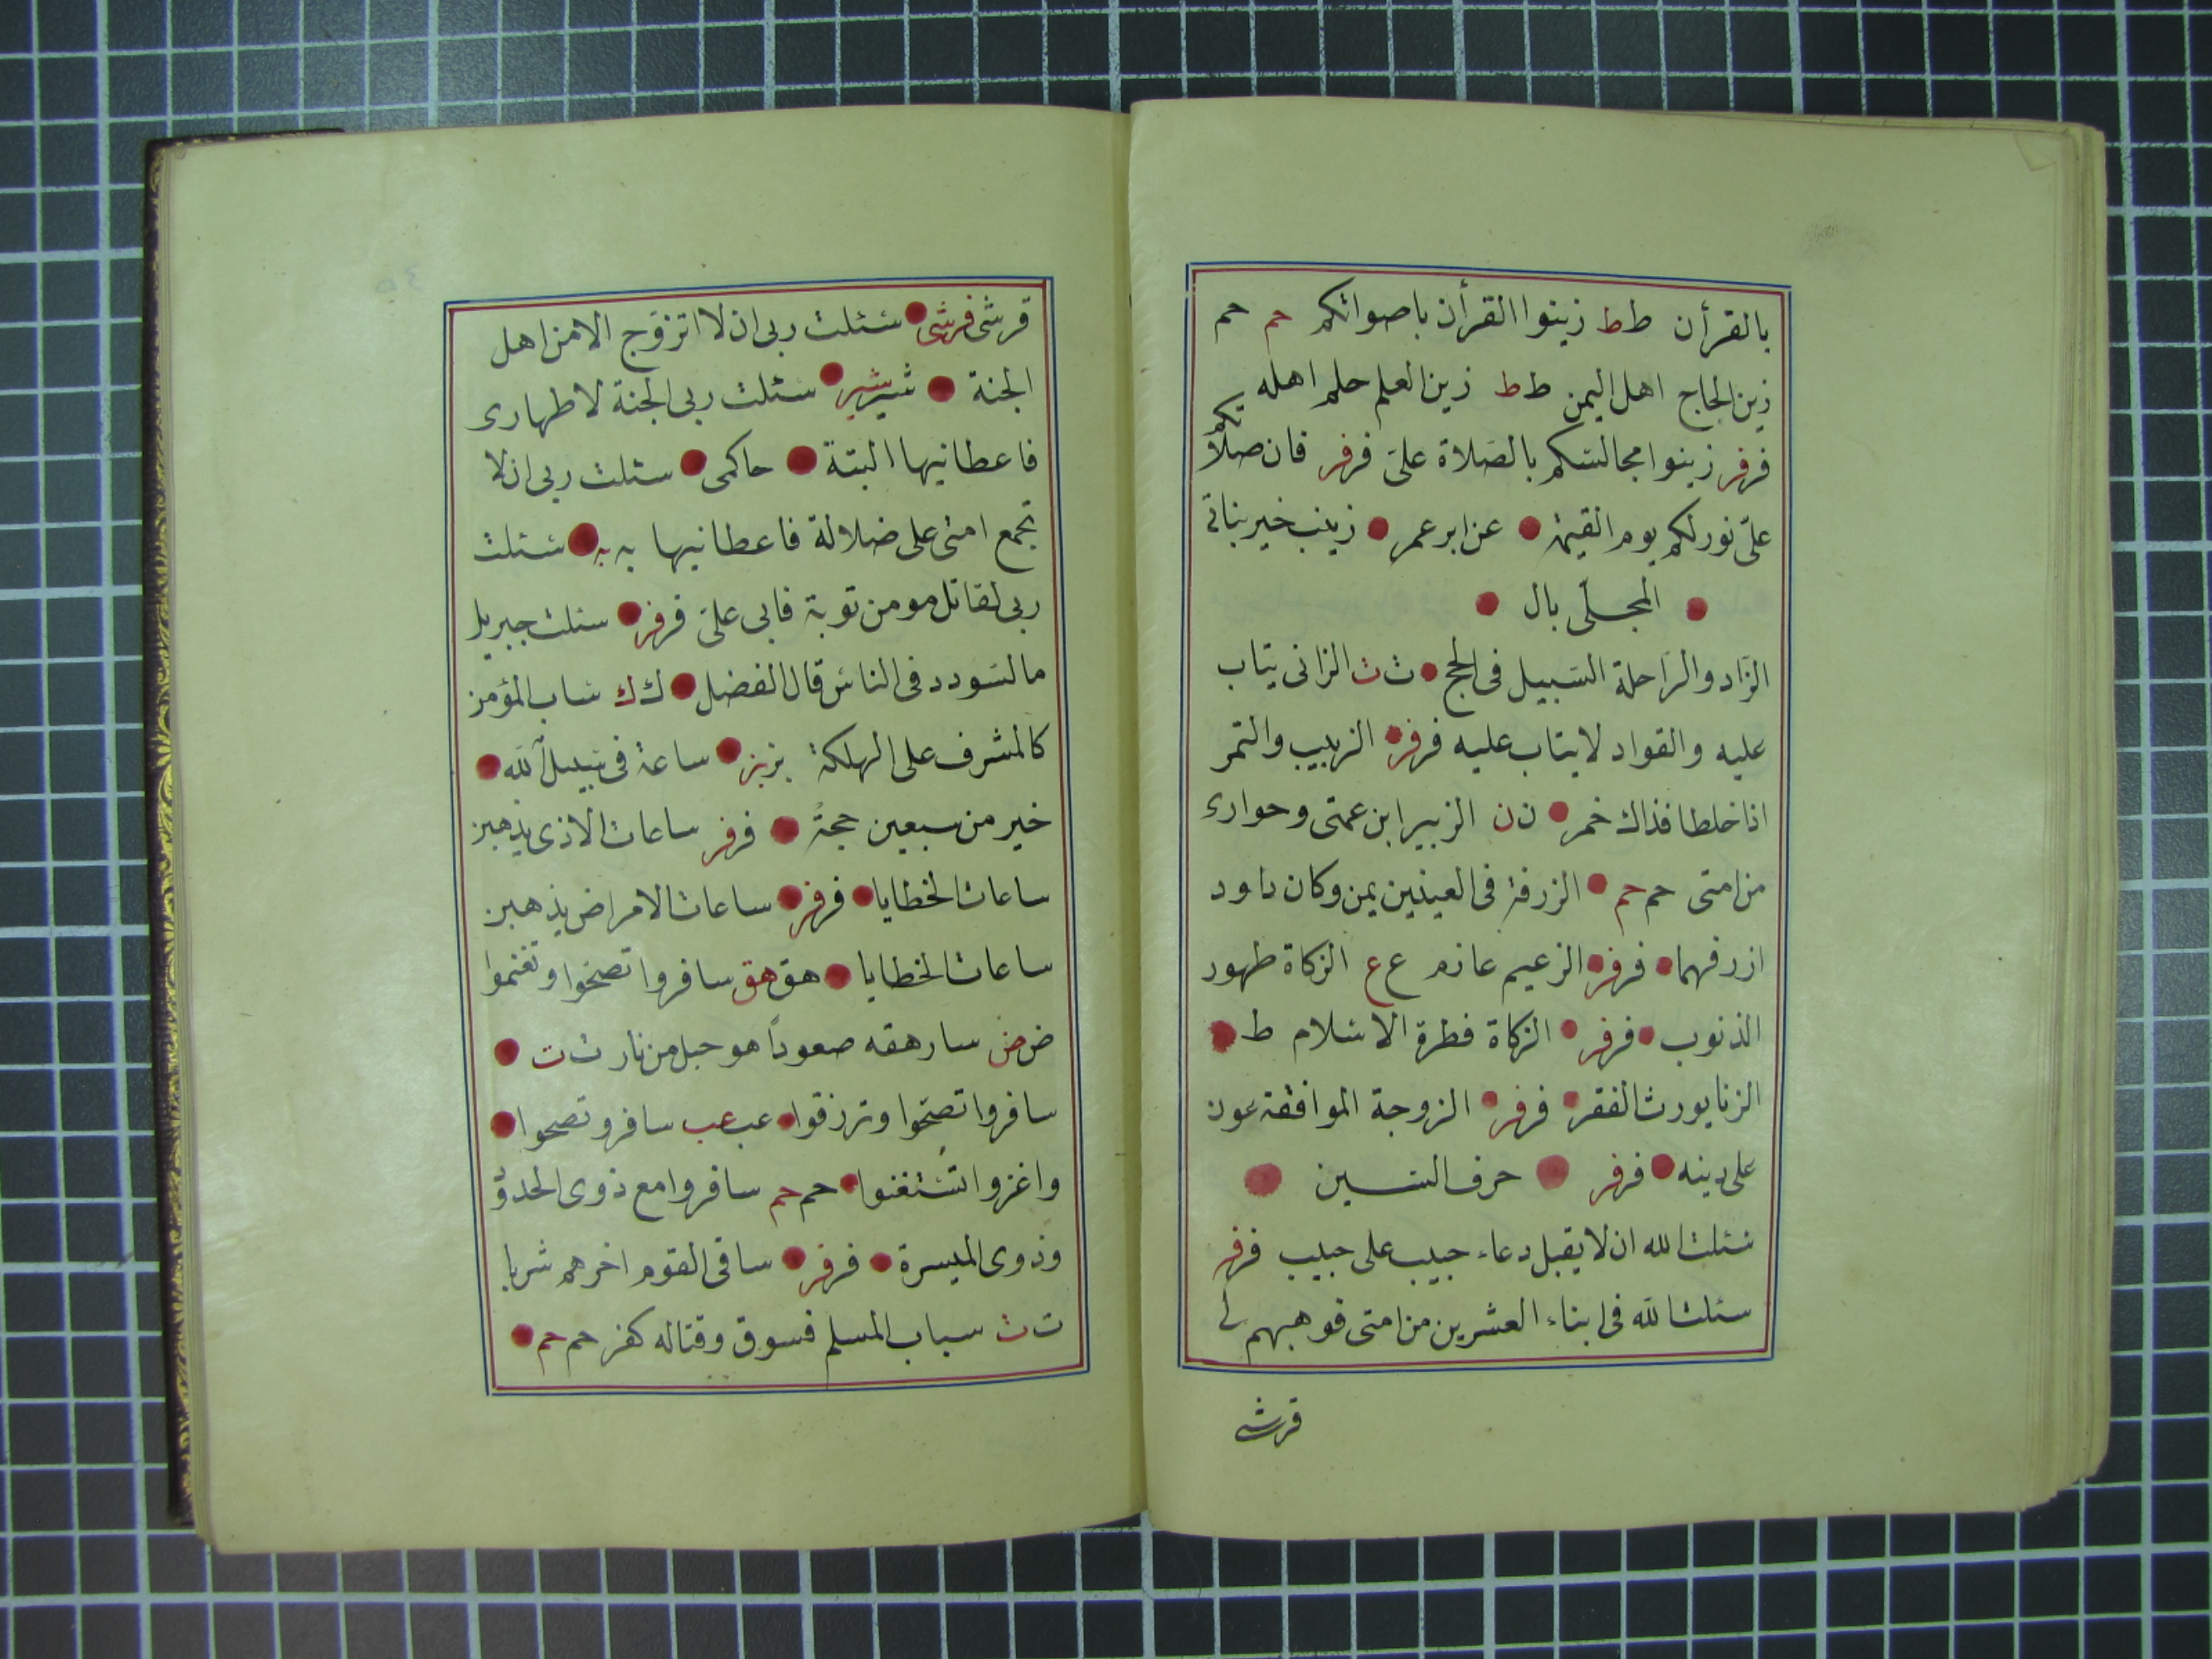 بالقرأن ط ط زينوا القرأن باصواتكم حم حم
زين الحاج اهل اليمن ط ط زين العلم حلم اهله
فر فر زينوا مجالسكم بالصلاة علىّ فر فر فان صلاتكم
علىّ نور لكم يوم القيمة عن ابر عمر زينب خير بناتى
المجلّى بال
الزاد والراحلة السبيل فى الحج ث ث الزانى يتاب
عليه والقواد لا يتاب عليه فر فر الزبيب والتمر
اذا خلطا فذاك خمر ن ن الزبير ابن عمتى وحوارى
من امتى حم حم الزرقة فى العينين يمن وكان داود
ازرقهما فر فر الزعيم غازم ع ع الزكاة طهور
الذنوب فر فر الزكاة فطرة الاسلام ط
الزنا يورث الفقر فر فر الزوجة الموافقة عون
على دينه فر فر حرف السين
سئلت الله ان لا يقبل دعاء حبيب على حبيب فر فر
سئلت الله فى ابناء العشرين من امتى فوهبهم لى
قرشى
قرشى قرشى سئلت ربى ان لا اتزوج الا من اهل
الجنة شير شير سئلت ربى الجنة لاطهارى
فاعطانيها البتة حاكمى سئلت ربى ان لا
تجمع امتى على ضلالة فاعطانيها به به سئلت
ربى لقاتل مومن توبة فابى علىّ فر فر سئلت جبريل
ما السودد فى الناس قال الفضل ك ك ساب المؤمن
كالمشرف على الهلكة بز بز ساعة فى سبيل الله
خير من سبعين حجة فر فر ساعات الاذى يذهبن
ساعات الخطايا فر فر ساعات الامراض يذهبن
ساعات الخطايا هق هق سافروا تصحوا وتغنموا
ض ض سارهقه صعوداً هو جبل من نار ت ت
سافروا تصحوا وترزقوا عب عب سافرو تصحوا
واغزوا تستغنوا حم حم سافروا مع ذوى الحدوّ
وذوى الميسرة فر فر ساقى القوم اخرهم شربا
ت ت سباب المسلم فسوق وقتاله كفر حم حم